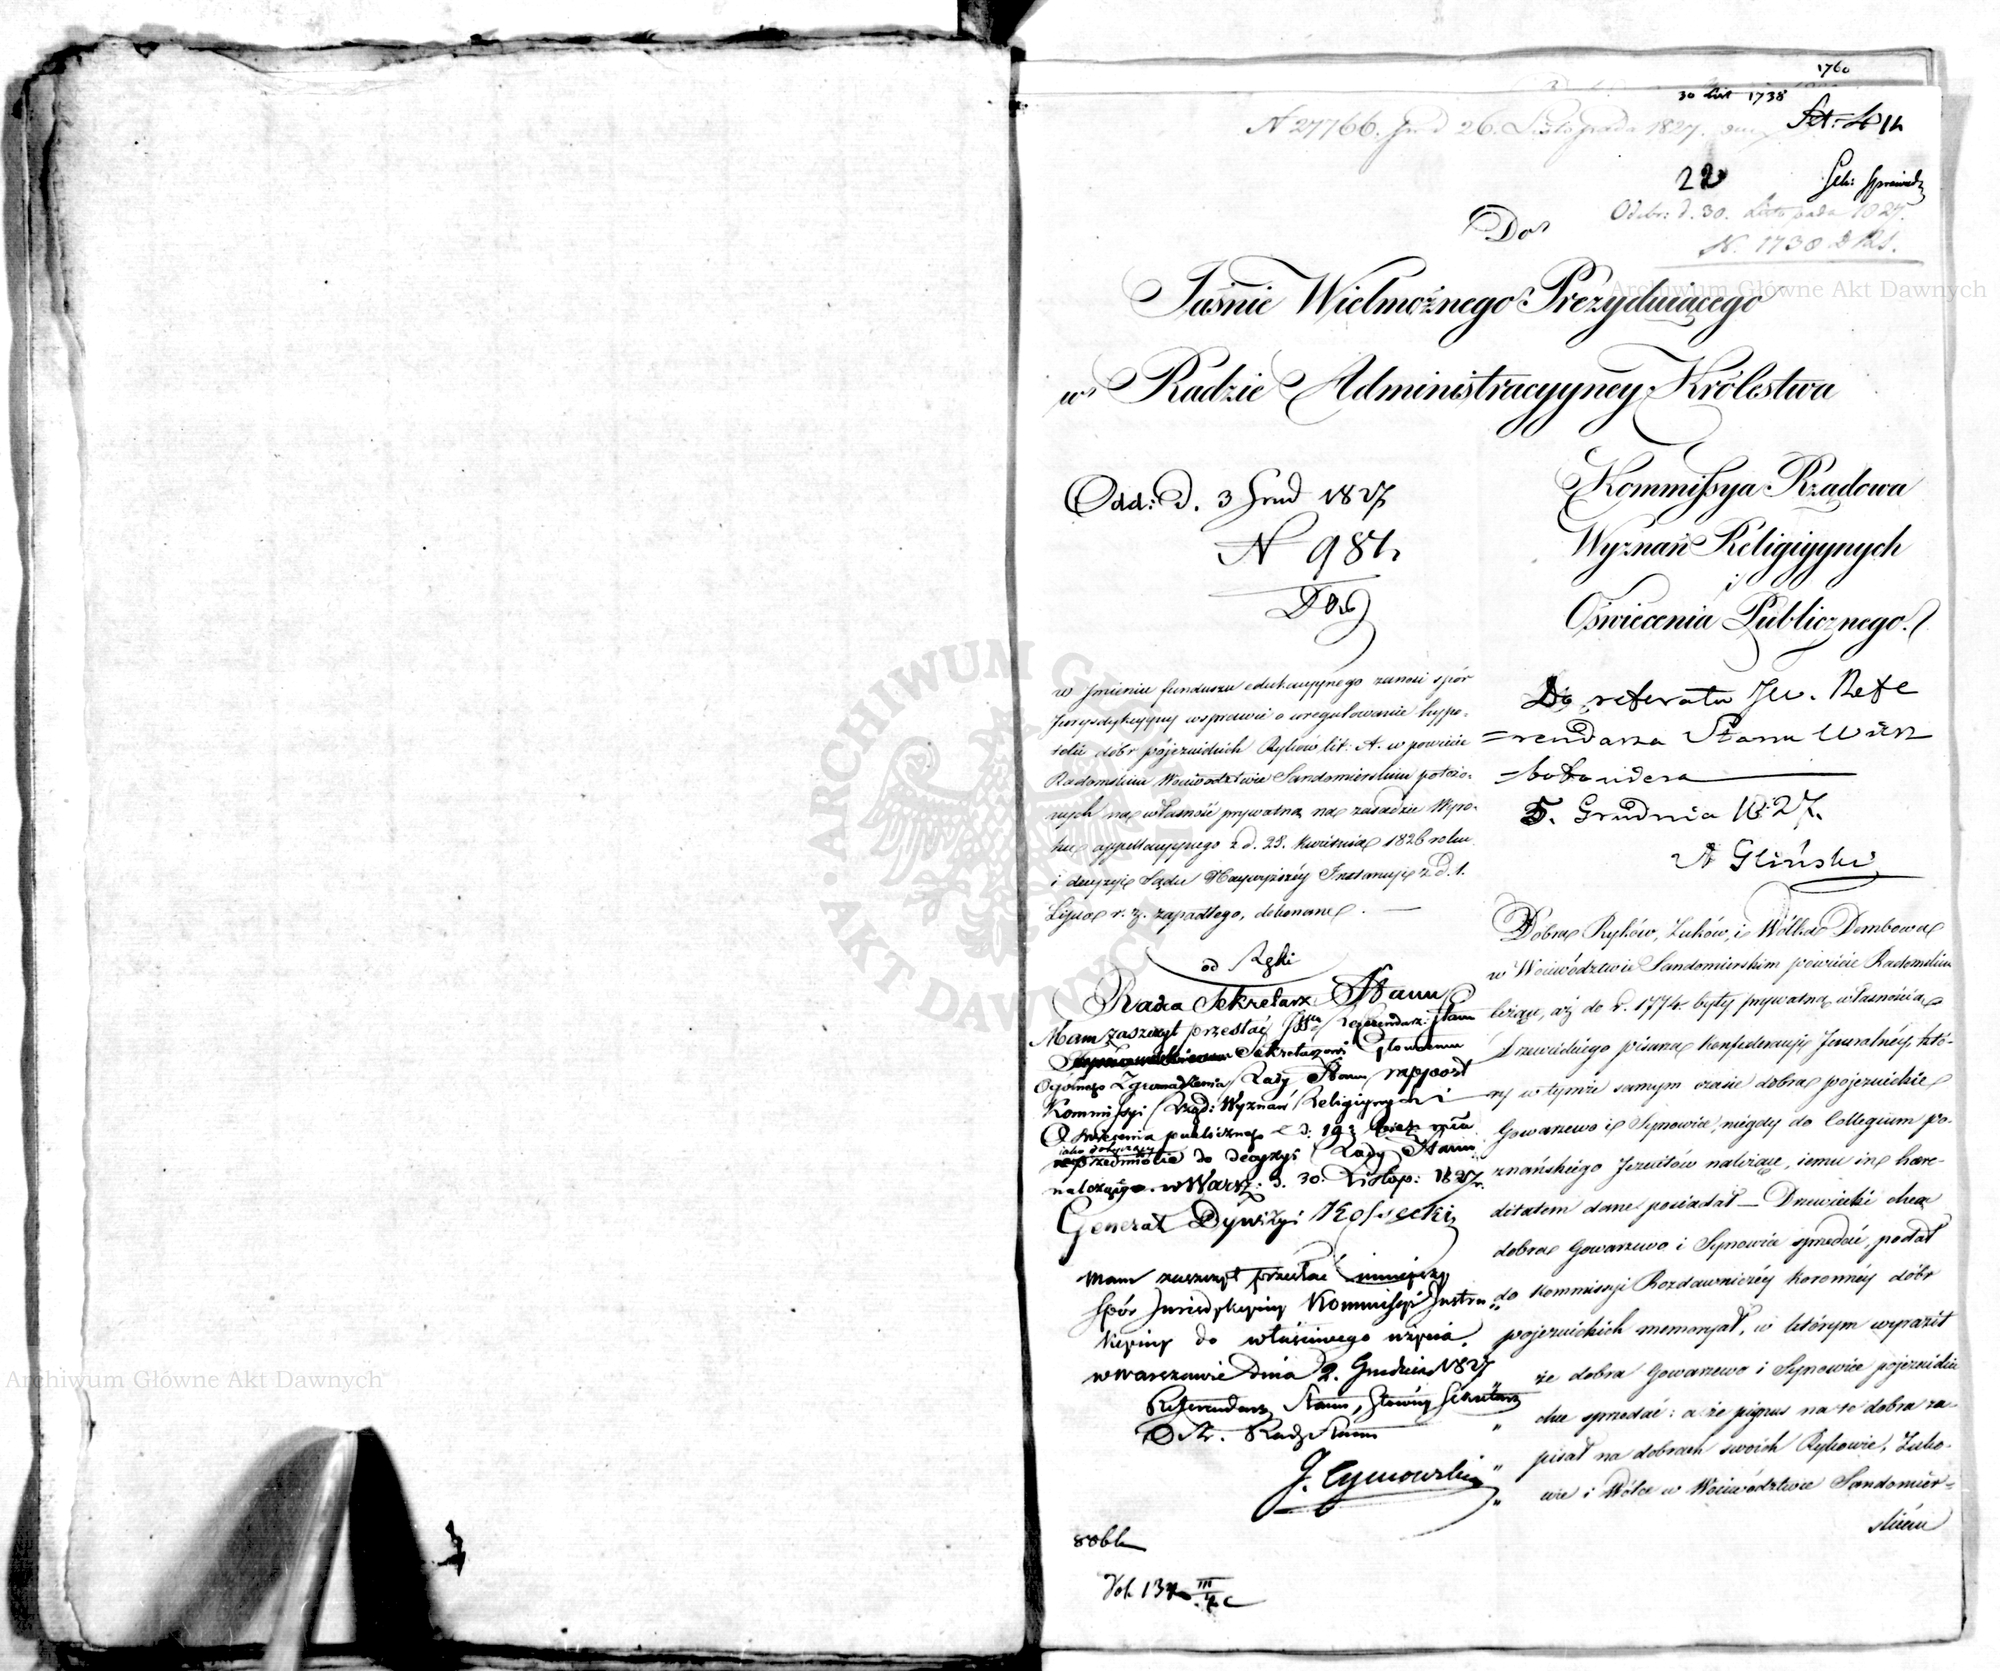 1760
30 List 1738
N 27766. 26. Listopada 1827.
22
Odebr: d. 30. Listopada 1827.
N. 1738
Do
Jaśnie Wielmożnego Prezyduiącego
w Radzie Administracyyney Królestwa
Odd: d. 3 Grud 1827
N 984
Kommissya Rządowa
Wyznań Religiyynych
i
Oświecenia Publicznego.
w Jmieniu funduszu edukacyynego zanosi spór
Jurysdykcyyny w sprawie o uregulowanie hypo-
teki dóbr pojezuickich Ryków lit: A. w powiecie
Radomskim Woiewództwie Sandomierskim położo-
nych na własność prywatną na zasadzie Wyro-
ku appellacyynego z d. 28. Kwietnia 1826 roku
i decyzyi Sądu Naywyższéy Instancyi z d. 1.
Lipca r. z. zapadłego, dokonane. —
Do referatu JW. Refe
=rendarza Stanu Wierz
=bołowicza
5. Grudnia 1827.
A Gliński
od Ręki
Radca Sekretarz Stanu
Mam zaszczyt przesłać Referendarz: Stanu
Sekretarzowi Głównemu
Ogólnego Zgromadzenia Rady Stanu rapport
Kommissyi Rząd: Wyznań Religiynych i
Oświecenia publicznego z d. 19
jako dotyczący
przedmiotu do decyzyi Rady Stanu
należącego. w Warsz: d. 30. Listop: 1827 r.
Generał Dywizyi Kossecki
Mam zaszczyt przesłać ninieyszy
spór Jurisdykcyiny Kommissyi Instru„
kcyiny do właściwego użycia
w Warszawie dnia 2. Grudnia 1827
Referendarz Stanu, Główny Sekretarz
Rady Stanu
J. Tymowski
Dobra Ryków, Żuków, i Wólka Dembowa
w Woiewództwie Sandomierskim powiecie Radomskim
leżące, aż do r. 1774 były prywatną własnością
Drzewickiego pisarza konfederacyi Jeneralnéy, któ-
ry w tymże samym czasie dobra pojezuickie
Gowarzewo i Synowice, niegdy do Collegium po-
znańskiego Jezuitów należące, iemu in haere-
ditatem dane posiadał — Drzewiecki chcąc
dobra Gowarzewo i Synowice sprzedać, podał
do Kommissyi Rozdawniczéy koronnéy dóbr
pojezuickich memoryał, w którym wyraził
że dobra Gowarzewo i Synowice pojezuickie
chce sprzedać: a że pignus na te dobra za-
„ pisał na dobrach swoich Rykowie, Żuko-
„ wie i Wólce w Woiewództwie Sandomier-
skiem
Vol. 134 III